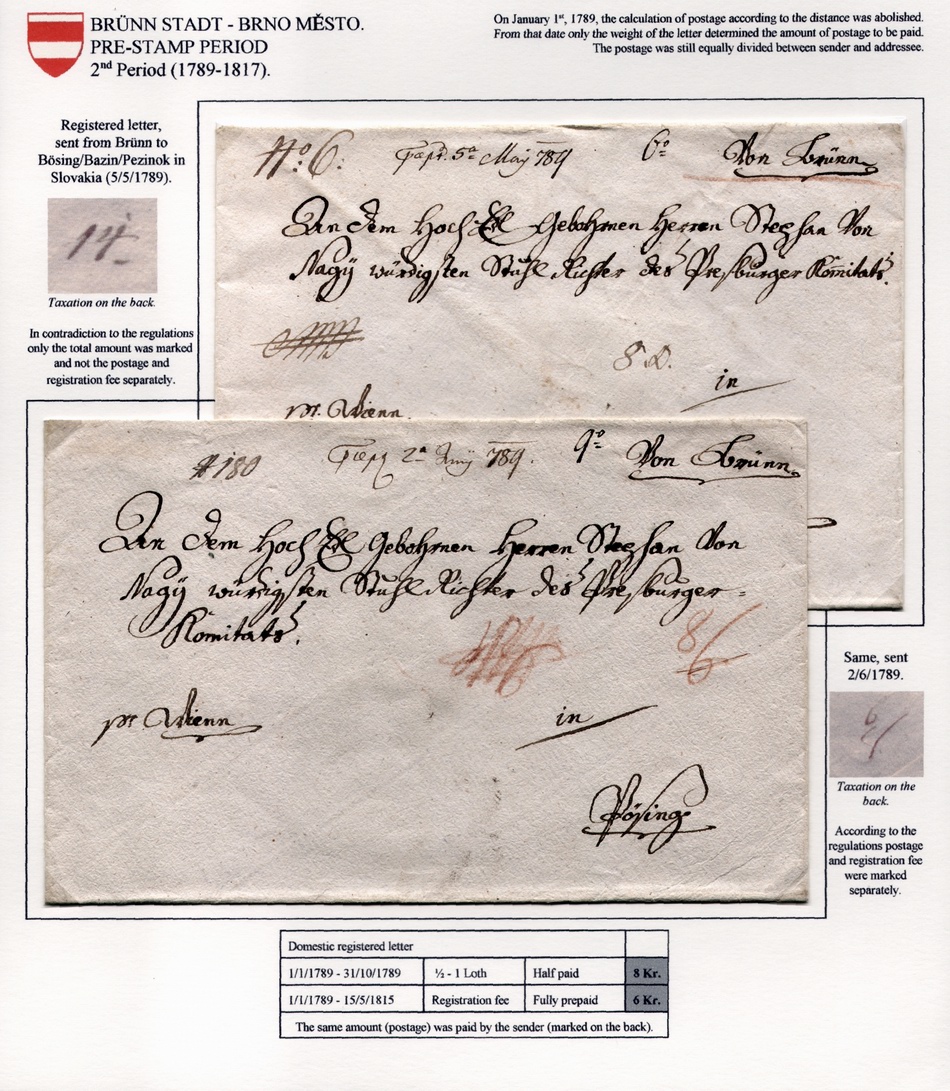 BRÜNN STADT - BRNO MĚSTO.
PRE-STAMP PERIOD
2nd Period (1789-1817).
On January 1st, 1789, the calculation of postage according to the distance was abolished.
From that date only the weight of the letter determined the amount of postage to be paid.
The postage was still equally divided between sender and addressee.
Registered letter,
sent from Brünn to
Bösing/Bazin/Pezinok in
Slovakia (5/5/1789).
14
Taxation on the back.
In contradiction to the regulations
only the total amount was marked
and not the postage and
registration fee separately.
No: 6: 5a May 789 6o Von Brünn
An dem Hoch Edl Gebohrnen Herren Stephan Von
Nagÿ würdigsten Stuhl Richter des Presburger Komitats.
8
in
pr. Wienn.
#180 2a 789. 9o Von Brünn.
An dem Hoch Edl Gebohrnen Herren Stephan Von
Nagÿ würdigsten Stuhl Richter des Presburger-
Komitats.
8/6
pr. Wienn
in
Pösing
Same, sent
2/6/1789.
Taxation on the
back.
According to the
regulations postage
and registration fee
were marked
separately.
Domestic registered letter
1/1/1789 - 31/10/1789 ½ - 1 Loth Half paid 8 Kr.
1/1/1789 - 15/5/1815 Registration fee Fully prepaid 6 Kr.
The same amount (postage) was paid by the sender (marked on the back).